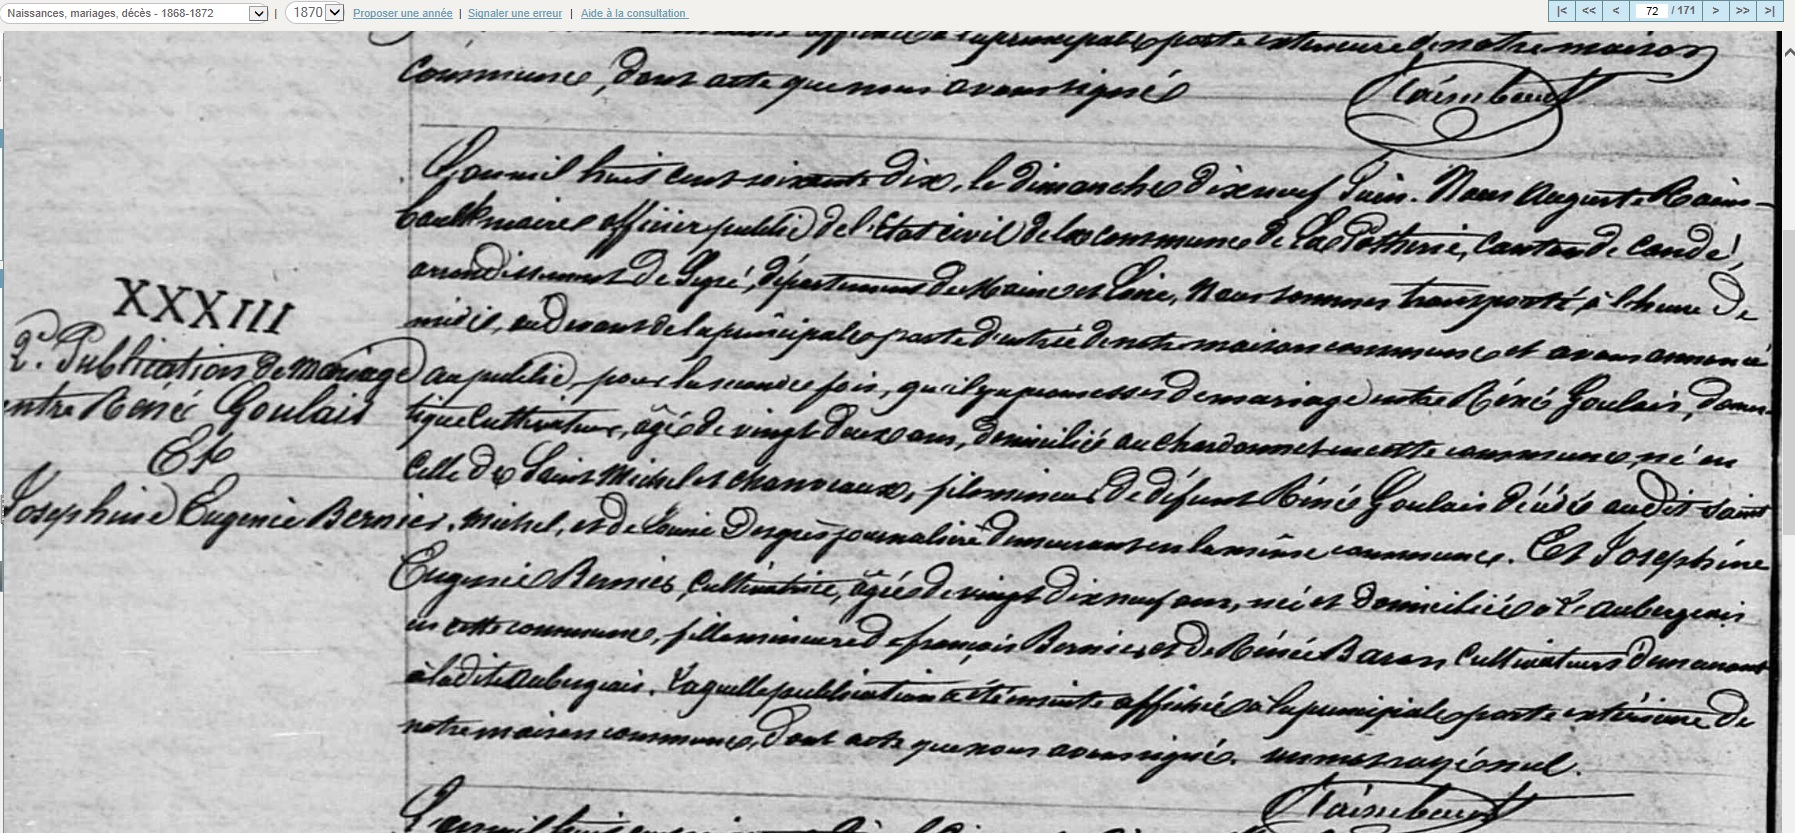 Naissances, mariages, décès - 1868-1872 | 1870 Proposer une année | Signaler une erreur | Aide à la consultation |< << < 72 / 171 > >> >|
affichée à la principale porte extérieure de notre maison
commune, dont acte que nous avons signé Raimbault
L'an mil huit cent soixante dix, le dimanche dix neuf Juin. Nous Auguste Raim-
bault maire officier public de l'Etat civil de la commune de La Potherie, canton de Candé,
arrondissement de Segré, département de Maine et Loire, Nous sommes transporté, à l'heure de
midi, au devant de la principale porte d'entrée de notre maison commune et avons annoncé
XXXIII
2e. Publication de mariage
entre René Goulais
Et
Josephine Eugenie Bernier.
au public, pour la seconde fois, qu'il y a promesse de mariage entre Réné Goulais, domes-
tique cultivateur, âgé de vingt deux ans, domicilié au chardonnet en cette commune, né en
celle de Saint Michel et chanveaux, fils mineur de défunt Réné Goulais décédé audit saint
Michel, et de Louise Desgrès journalière demeurant en la même commune. Et Josephine
Eugenie Bernier, Cultivatrice, âgée de vingt dix neuf ans, née et domiciliée à L'aubergeais
en cette commune, fille mineure de françois Bernier et de Rénée Baron Cultivateurs demeurant
à ladite aubergeais. Laquelle publication a été ensuite affichée à la principale porte extérieure de
notre maison commune, dont acte que nous avons signé. un mot rayé nul.
Raimbault
L'an mil huit cent